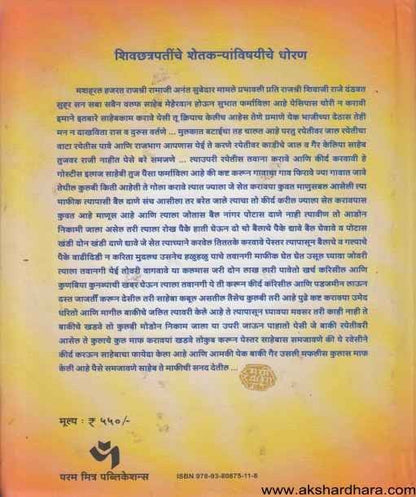 शिवछत्रपतींचे शेतकऱ्यांविषयीचे धोरण
मशहुरल हजरत राजश्री रामाजी अनंत सुबेदार मामले प्रभावली प्रति राजश्री शिवाजी राजे दंडवत
सुहूर सन सबा सबैन व अलफ साहेब मेहेरबान होऊन सुभात फर्माविला आहे पेसियास चोरी न करावी
इमाने इतबारे साहेबकाम करावे येसी तू क्रियाच केलीच आहेस तेणे प्रमाणे येक भाजीच्या देठास तेही
मन न दाखविता रास व दुरुस्त वर्तणे ... मुलकात बटाईचा तह चालत आहे परतु रयेतीवर जाल रयेतीचा
वाटा रयेतीस पावे आणि राजभाग आपणास येई ते करणे रयेतीवर काडीचे जाल व गैर केलिया साहेब
तुजवर राजी नाहीत येसे बरे समजणे ... त्याउपरी रयेतीस तवाना करावे आणि कीर्द करवावी हे
गोस्टीस इलाज साहेबी तुज पैसा फर्माविला आहे की कष्ट करून गावाचा गाव फिरावे ज्या गावात जावे
तेथील कुळबी किती आहेती ते गोला करावे त्यात ज्याला जे सेत करावया कुवत माणुसबल आसेली त्या
माफीक त्यापासी बैल दाणे संच आसिला तर बरेत जाले त्याचा तो कीर्द करील ज्याला सेत करावयास
कुवत आहे माणूस आहे आणि त्याला जोतास बैल नांगर पोटास दाणे नाही त्यावीण तो आडोन
निकामी जाला असेल तरी त्याला रोख पैके हाती घेऊन दो चो बैलाचे पैके द्यावे बैल घेवावे व पोटास
खंडी दोन खंडी दाणे द्यावे जे सेत त्याच्याने करवेल तितके करवावे पेस्तर त्यापासून बैलाचे व गल्याचे
पैके वाढीदिडी न करिता मुदलच उसनेच हळुहळु याचे तवानगी माफीक घेत घेत उसूल घ्यावा जोवरी
त्याला तवानगी येई तोवरी वागवावे या कलमास जरी दोन लाख लारी पावेतो खर्च करिसील आणि
कुणबिया कुनब्याची खबर घेऊन त्याला तवानगी ये ती करून कीर्द करिसील आणि पडजमीन लाऊन
दस्त जाजती करून देसील तरी साहेबा कबूल असतील तैसेच कुळबी तरी आहे पुढे कष्ट करावया उमेद
धरितो आणि मागील बाकीचे जलित त्यावरी केले आहे ते त्यापासून घ्यावया मवसर तरी काही नाही ते
बाकीचे खडवे तो कुळबी मोडोन निकाम जाला या उपरी जाऊन पाहातो येसी जे बाकी रयेतीवरी
आसेल ते कुलाचे कुल माफ करावया खडवे तोकुब करून पेस्तर साहेबास समजावणे की ये रवेसीने
कीर्द करऊन साहेबाचा फायेदा केला आहे आणि आमकी येक बाकी गैर उसली मफलीस कुलास माफ
केली आहे पैसे समजावणे साहेब ते माफीची सनद देतील ...
मूल्य: ₹ ५५०/-
परम मित्र पब्लिकेशन्स
ISBN 978-93-80875-11-8
www.akshardhara.com